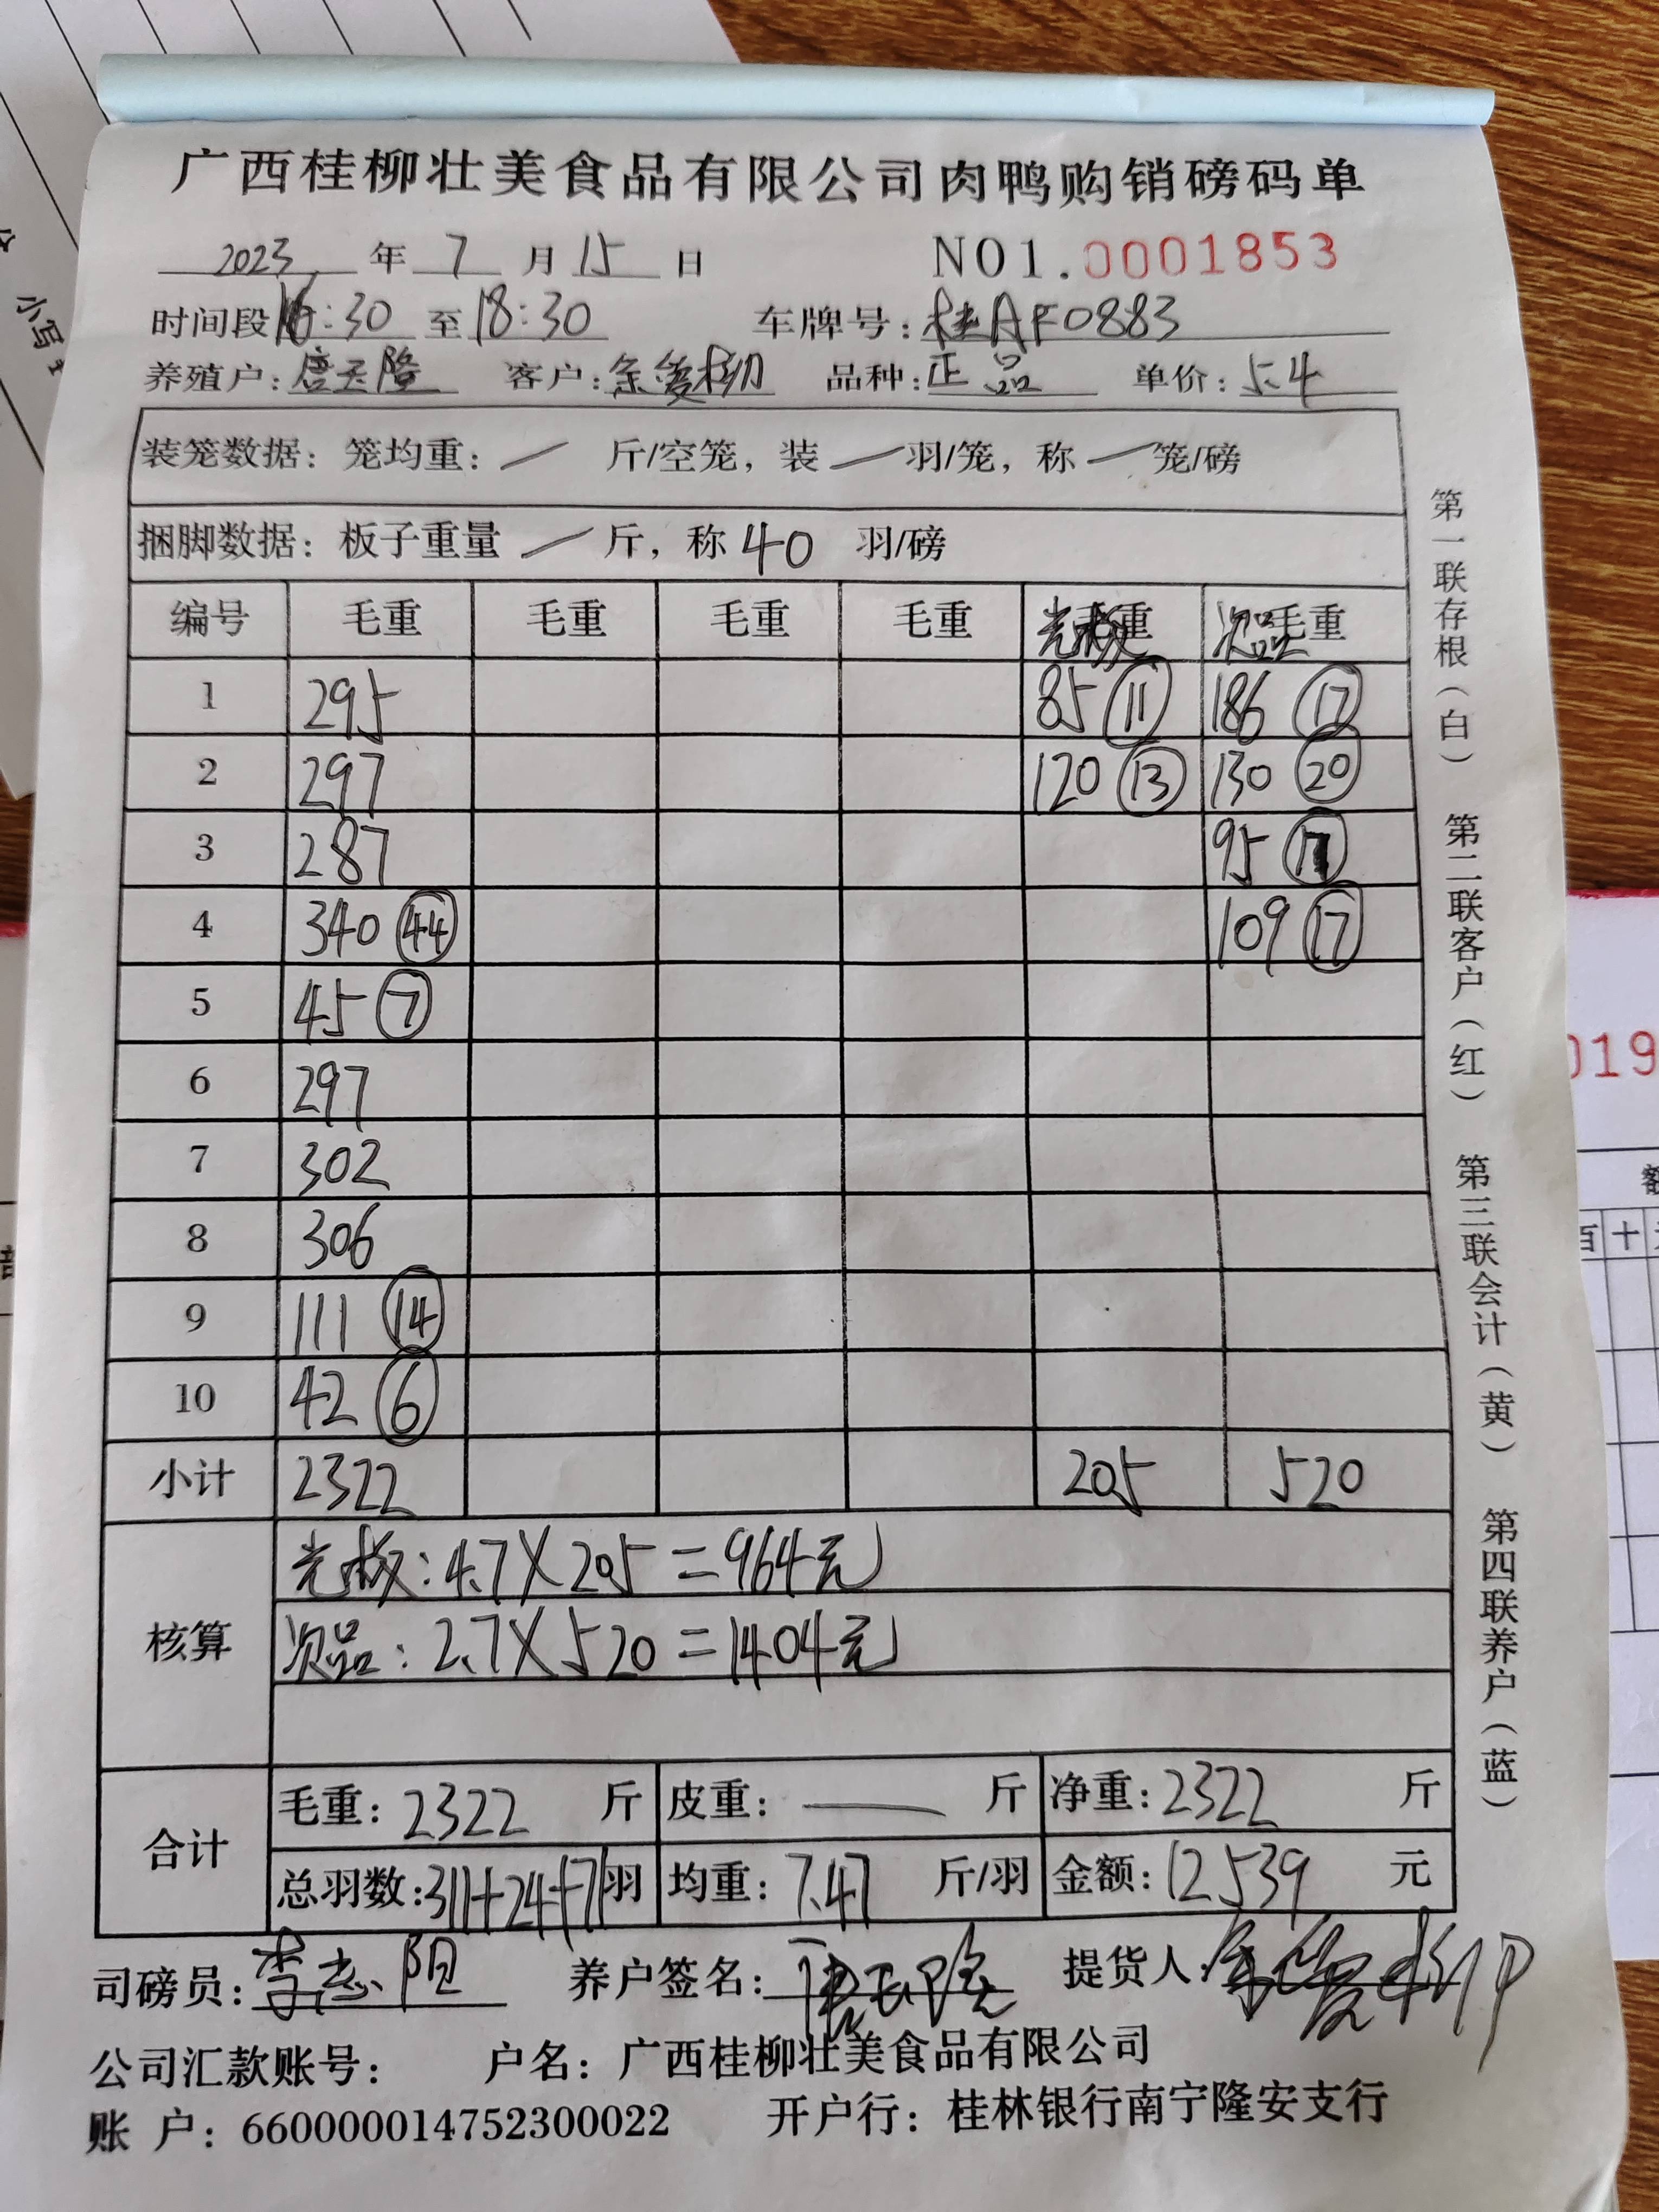 广西桂柳壮美食品有限公司肉鸭购销磅码单
2023 年 7 月 15 日 NO1.0001853
时间段 16:30 至 18:30 车牌号:桂AF0883
养殖户:唐玉隆 客户: 品种:正品 单价:5.4
装笼数据:笼均重:一 斤/空笼,装 一 羽/笼,称 一 笼/磅
捆脚数据:板子重量 一 斤,称 40 羽/磅
编号 毛重 毛重 毛重 毛重 光板 毛重 次品 毛重
1 295 85 ⑪ 186 ⑰
2 297 120 ⑬ 130 ⑳
3 287 95
4 340 ㊹ 109 ⑰
5 45 ⑦
6 297
7 302
8 306
9 111 ⑭
10 42 ⑥
小计 2322 205 520
核算
光板:4.7×205=964元
次品:2.7×520=1404元
合计
毛重:2322 斤 皮重:— 斤 净重:2322 斤
总羽数:311+24+71羽 均重:7.47 斤/羽 金额:12539 元
司磅员:李志阳 养户签名:唐玉隆 提货人:
公司汇款账号: 户名:广西桂柳壮美食品有限公司
账 户:660000014752300022 开户行:桂林银行南宁隆安支行
第一联存根(白) 第二联客户(红) 第三联会计(黄) 第四联养户(蓝)
小写
019
百十